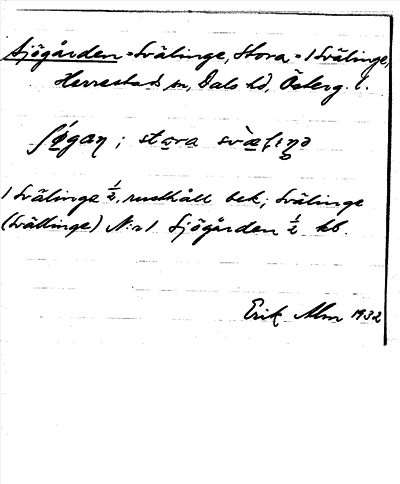 Sjögården = Svälinge, Stora = 1 Svälinge,
Herrestads sn, Dals hd, Österg. l.
ʃø̀gaɳ ; stɷra svæ̀lıŋə
1 Svälinge ½, rusthåll bek; Svälinge
(Svällinge) N:r 1 Sjögården ½ kb.
Erik Alm 1932